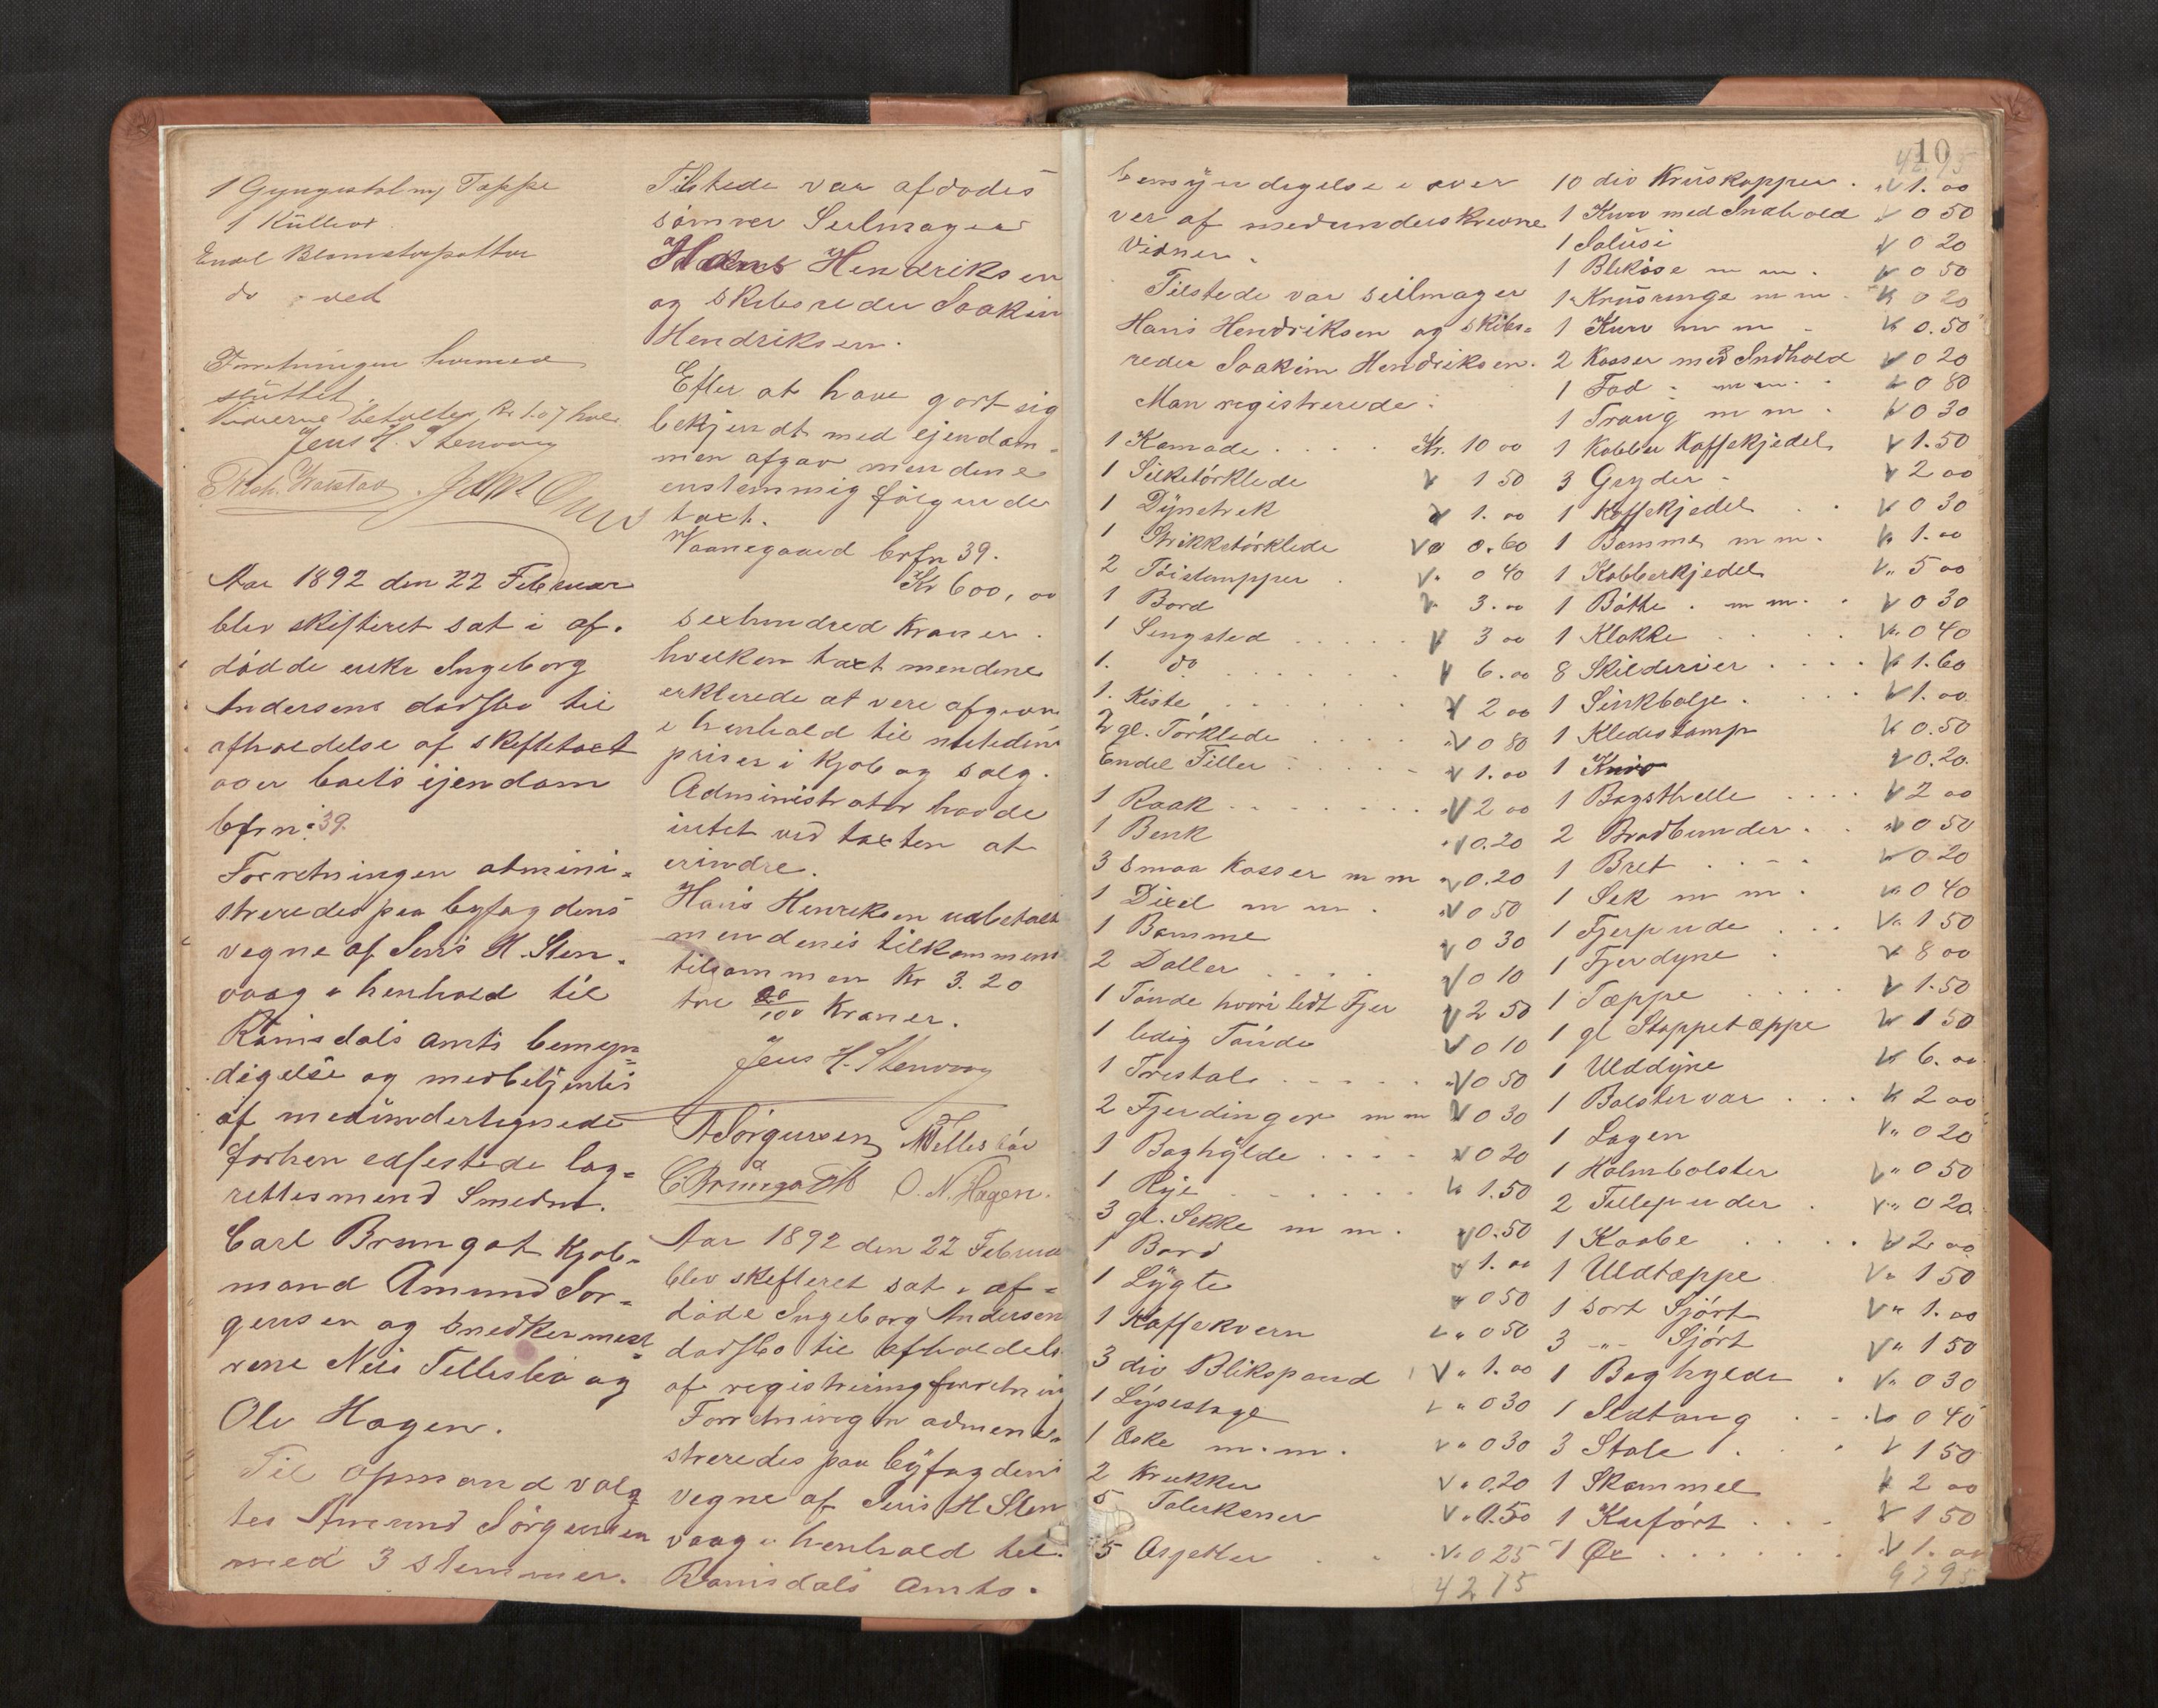 1 Gyngestol m/ Tæppe
1 Kullov
Endel Blomsterpotter
do ved
Forretningen hermed
sluttet.
Vidnerne betaltes
Jens H. Stenvaag
Aar 1892 den 22 Februar
blev skifteret sat i af.
dødde enke Ingeborg
Andersens dødsbo til
afholdelse af skiftetaxt
over boets ejendom
bfrn: 39.
Forretningen atmini=
streredes paa byfogdens
vegne af Jens H. Sten.
vaag i henhold til
Romsdals amts bemyn=
digelse og medbetjentes
af medundertegnede
forhen edfestede lag=
rettesmend Smedm.
Carl Brungot Kjøb=
mand Amund Jør=
gensen og Snedkermest
rene Nils Tellesbø og
Ole Hagen.
Til opmand valg
tes Amund Jørgensen
med 3 stemmer.
Tilstede var afdødes
sønner Seilmager
Hans Hendriksen
og skibsreder Joakim
Hendriksen.
Efter at have gort sig
bekjendt med ejendom=
men afgav mendene
enstemmig følgende
taxt.
Vaanegaard brfn 39.
Kr 600, 00
sexhundred Kroner.
hvelken taxt mendene
erklerede at vere afgiven
i henhold til nutidens
priser i kjøb og salg.
Administrator havde
intet ved taxten at
erindre.
Hans Henriksen udbetalte
mendenes tilkommende
tilsammen Kr 3.20
tre 20/100 Kroner.
Jens H. Stenvaag
A Jørgensen N Tellesbøe
C Brungodt O. N. Hagen.
Aar 1892 den 22 Februar
blev skifteret sat i af=
døde Ingeborg Andersen
dødsbo til afholdels
af registreringforretning
Forretningen admeni=
streredes paa byfogdens
vegne af Jens H Sten
vaag i henhold til
Romsdals Amts.
10
42 75
bemyndigelse over
ver af medunderskrevne
vidner.
Tilstede var seilmager
Hans Hendriksen og skibs=
reder Joakim Hendriksen.
Man registrerede:
1 Komode . . . . Kr. 10 00
1 Silketørklede 1 50
1 Dynetrek 1. 00
1 Strikketørklede 0.60
2 Tøistamper . 0 40
1 Bord 3. 00
1 Sengsted . . . . . 3 00
1. do . . . . . . 6. 00
1. Kiste . . . . . . 2 00
2 gl. Tørklede . . . . 0 80
Endel Filler . . . . 1. 00
1 Raak . . . . . . 2 00
1 Benk 0.20
3 smaa Kasser m m 0.20
1 Dixel m m . 0 50
1 Bomme 0 30
2 Doller . . . . 0 10
1 Tønde hvori lidt Fjer 2 50
1 ledig Tønde 0 10
1 Trestol . . . . . 0 50
2 Fjerdinger m m 0 30
1 Boghylde . . . . 0 20
1 Rye . . . . . . 1.50
3 gl. Sekke m m . 0.50
1 Bord 1. 00
1 Lygte 0 50
1 Kaffekvern 0 50
3 div Blikspand 1. 00
1 Lysestage 0 30
1 Æske m. m. 0 30
2 Krukker 0.20
5 Talerkener 0.50
5 Asjetter . . . 0 25
42 75
10 div Kruskopper . 1. 00
1 Kurv med Indhold 0 50
1 Salusi 0 20
1 Blikøse m m . 0 50
1 Krusrunge m m . 0 20
1 Kurv m m . 0.50
2 Kasser med Indhold 0 20
1 Fad . m m . . 0 80
1 Traug m m . 0 30
1 Kobber Kaffekjedel 1.50
3 Gryder . 2 00
1 Kaffekjedel . . 0 30
1 Bomme m m . 1. 00
1 Kobberkjedel 5 00
1 Bøtte . m m . . 0 30
1 Klokke . . . . . 0 40
8 Skilderier . . . . 1.60
1 Sinkbalge . . . . 1. 00
1 Kledestamp 0.50
1 Kniv 0.20.
1 Bagsthelle . . . . 2 00
2 Brødbunder . . 0 50
1 Bret . . . . 0 20
1 Sek m m . 0 40
1 Fjerpude . . . 1 50
1 Fjerdyne . 8 00
1 Tæppe . . . . 1.50
1 gl Stoppetæppe 1 50
1 Ulddyne 6. 00
1 Bolstervar . . . 2 00
1 Lagen 0 20
1 Halmbolster 0 50
2 Fillepuder . 0 20.
1 Kaabe . . . . 2. 00
1 Uldtæppe 1 50
1 sort Sjørt 1. 00
3 -"- Sjørt 1 50
1 Boghylde . 0 30
1 Ildtang . . . 0 40
3 Stole . . . 1 50
1 Skammel 2 00
1 Kufört . . . 1 50
1 Øx . . . . . . 1. 00
97 95